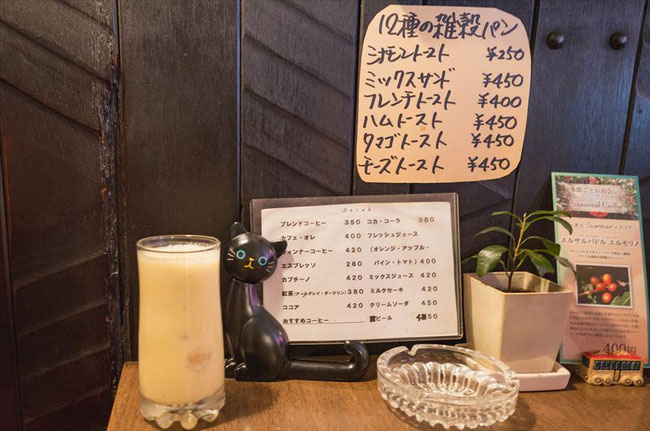 12種の雑穀パン
シナモントースト ¥250
ミックスサンド ¥450
フレンチトースト ¥400
ハムトースト ¥450
タマゴトースト ¥450
チーズトースト ¥450
Drink
ブレンドコーヒー 350
カフェ・オレ 400
ウィンナーコーヒー 420
エスプレッソ 280
カプチーノ 420
紅茶(アールグレイ・ダージリン) 380
ココア 420
おすすめコーヒー
コカ・コーラ 380
フレッシュジュース
(オレンジ・アップル・
パイン・トマト) 400
ミックスジュース 420
ミルクセーキ 420
クリームソーダ 450
ビール
季節ごとの出会い
Seasonal Coffee
Summer
エルサルバドル エルモリノ
400円